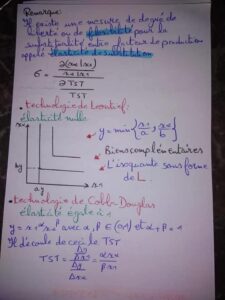 Remarque:
Il existe une mesure de degré de
liberté ou de flexibilité pour la
substituabilité entre facteurs de production
appelé élasticité de substitution
σ = (∂(x2/x1) / (x2/x1)) / (∂TST / TST)
• technologie de Leontief:
élasticité nulle
x2
y = min{x1/a ; x2/b}
Biens complémentaires
L'isoquante sous forme
de L.
ay
x1
• technologie de Cobb Douglas
élasticité égale à 1
y = x1^α x2^β avec α, β ∈ (0,1) et α+β = 1
Il découle de ceci le TST
TST = (Δy/Δx1) / (Δy/Δx2) = αx2 / βx1